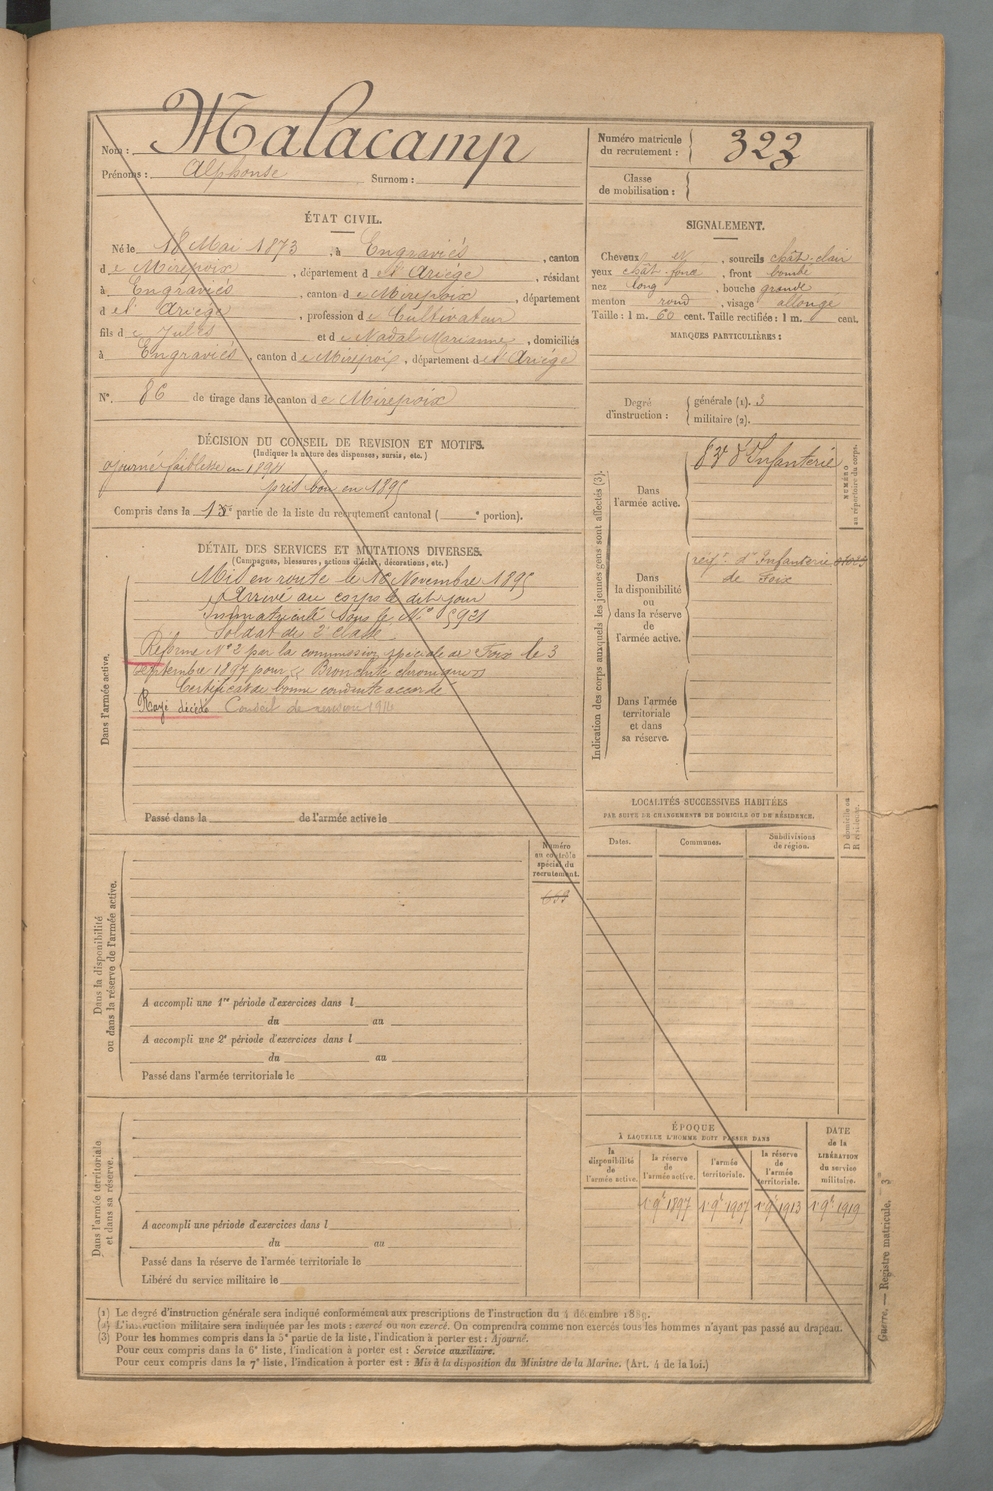 Nom : Malacamp
Prénoms : Alphonse Surnom :
Numéro matricule
du recrutement : 323
Classe
de mobilisation :
ÉTAT CIVIL.
Né le 18 Mai 1873, à Engraviès, canton
de Mirepoix, département de l'Ariège, résidant
à Engraviès, canton de Mirepoix, département
de l'Ariège, profession de Cultivateur
fils de Jules et de Nadal Marianne, domiciliés
à Engraviès, canton de Mirepoix, département de l'Ariège
N° 86 de tirage dans le canton de Mirepoix
SIGNALEMENT.
Cheveux , sourcils chât-clair
yeux chât-foncé, front bombé
nez long, bouche grande
menton rond, visage allongé
Taille : 1 m. 60 cent. Taille rectifiée : 1 m. cent.
MARQUES PARTICULIÈRES :
Degré
d'instruction :
générale (1). 3
militaire (2).
DÉCISION DU CONSEIL DE REVISION ET MOTIFS.
(Indiquer la nature des dispenses, sursis, etc.)
ajourné faiblesse en 1894
pris bon en 1895
Compris dans la 1re partie de la liste du recrutement cantonal ( e portion).
DÉTAIL DES SERVICES ET MUTATIONS DIVERSES.
(Campagnes, blessures, actions d'éclat, décorations, etc.)
Dans l'armée active.
Mis en route le 16 Novembre 1895
Arrivé au corps le dit jour
Immatriculé sous le N° 5921
Soldat de 2e classe
Réformé N° 2 par la commission spéciale de Foix le 3
septembre 1897 pour « Bronchite chronique »
Certificat de bonne conduite accordé
Rayé décédé Conseil de revision 1916
Passé dans la de l'armée active le
Indication des corps auxquels les jeunes gens sont affectés (3).
Dans
l'armée active.
83e d'Infanterie
NUMÉRO
au répertoire du corps.
Dans
la disponibilité
ou
dans la réserve
de
l'armée active.
régt d'Infanterie
de Foix
Dans l'armée
territoriale
et dans
sa réserve.
LOCALITÉS SUCCESSIVES HABITÉES
PAR SUITE DE CHANGEMENTS DE DOMICILE OU DE RÉSIDENCE.
Dates.
Communes.
Subdivisions
de région.
D domicile ou
R résidence.
Dans la disponibilité
ou dans la réserve de l'armée active.
Numéro
au contrôle
spécial du
recrutement.
A accompli une 1re période d'exercices dans l
du au
A accompli une 2e période d'exercices dans l
du au
Passé dans l'armée territoriale le
Dans l'armée territoriale
et dans sa réserve.
A accompli une période d'exercices dans l
du au
Passé dans la réserve de l'armée territoriale le
Libéré du service militaire le
ÉPOQUE
À LAQUELLE L'HOMME DOIT PASSER DANS
la
disponibilité
de
l'armée active.
la réserve
de
l'armée active.
l'armée
territoriale.
la réserve
de
l'armée
territoriale.
DATE
de la
LIBÉRATION
du service
militaire.
1r 9e 1897 1r 9e 1907 1r 9e 1913 1r 9e 1919
(1) Le degré d'instruction générale sera indiqué conformément aux prescriptions de l'instruction du 4 décembre 1889.
(2) L'instruction militaire sera indiquée par les mots : exercé ou non exercé. On comprendra comme non exercés tous les hommes n'ayant pas passé au drapeau.
(3) Pour les hommes compris dans la 5e partie de la liste, l'indication à porter est : Ajourné.
Pour ceux compris dans la 6e liste, l'indication à porter est : Service auxiliaire.
Pour ceux compris dans la 7e liste, l'indication à porter est : Mis à la disposition du Ministre de la Marine. (Art. 4 de la loi.)
Guerre. — Registre matricule. — 3